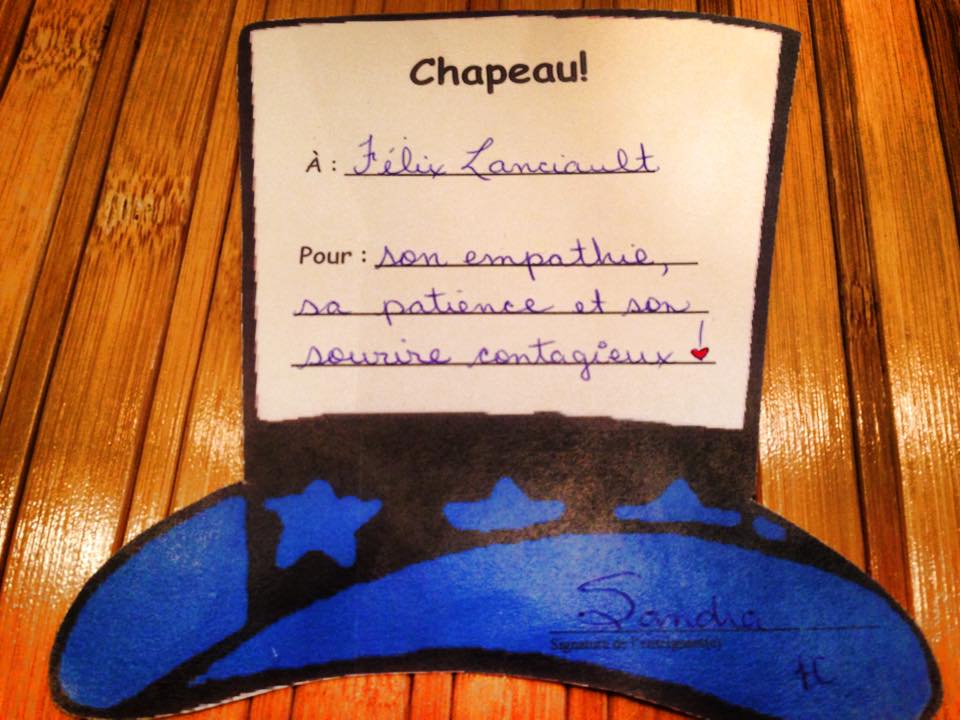 Chapeau!
À : Félix Lanciault
Pour : son empathie,
sa patience et son
sourire contagieux !
Sandra
Signature de l'enseignant(e)